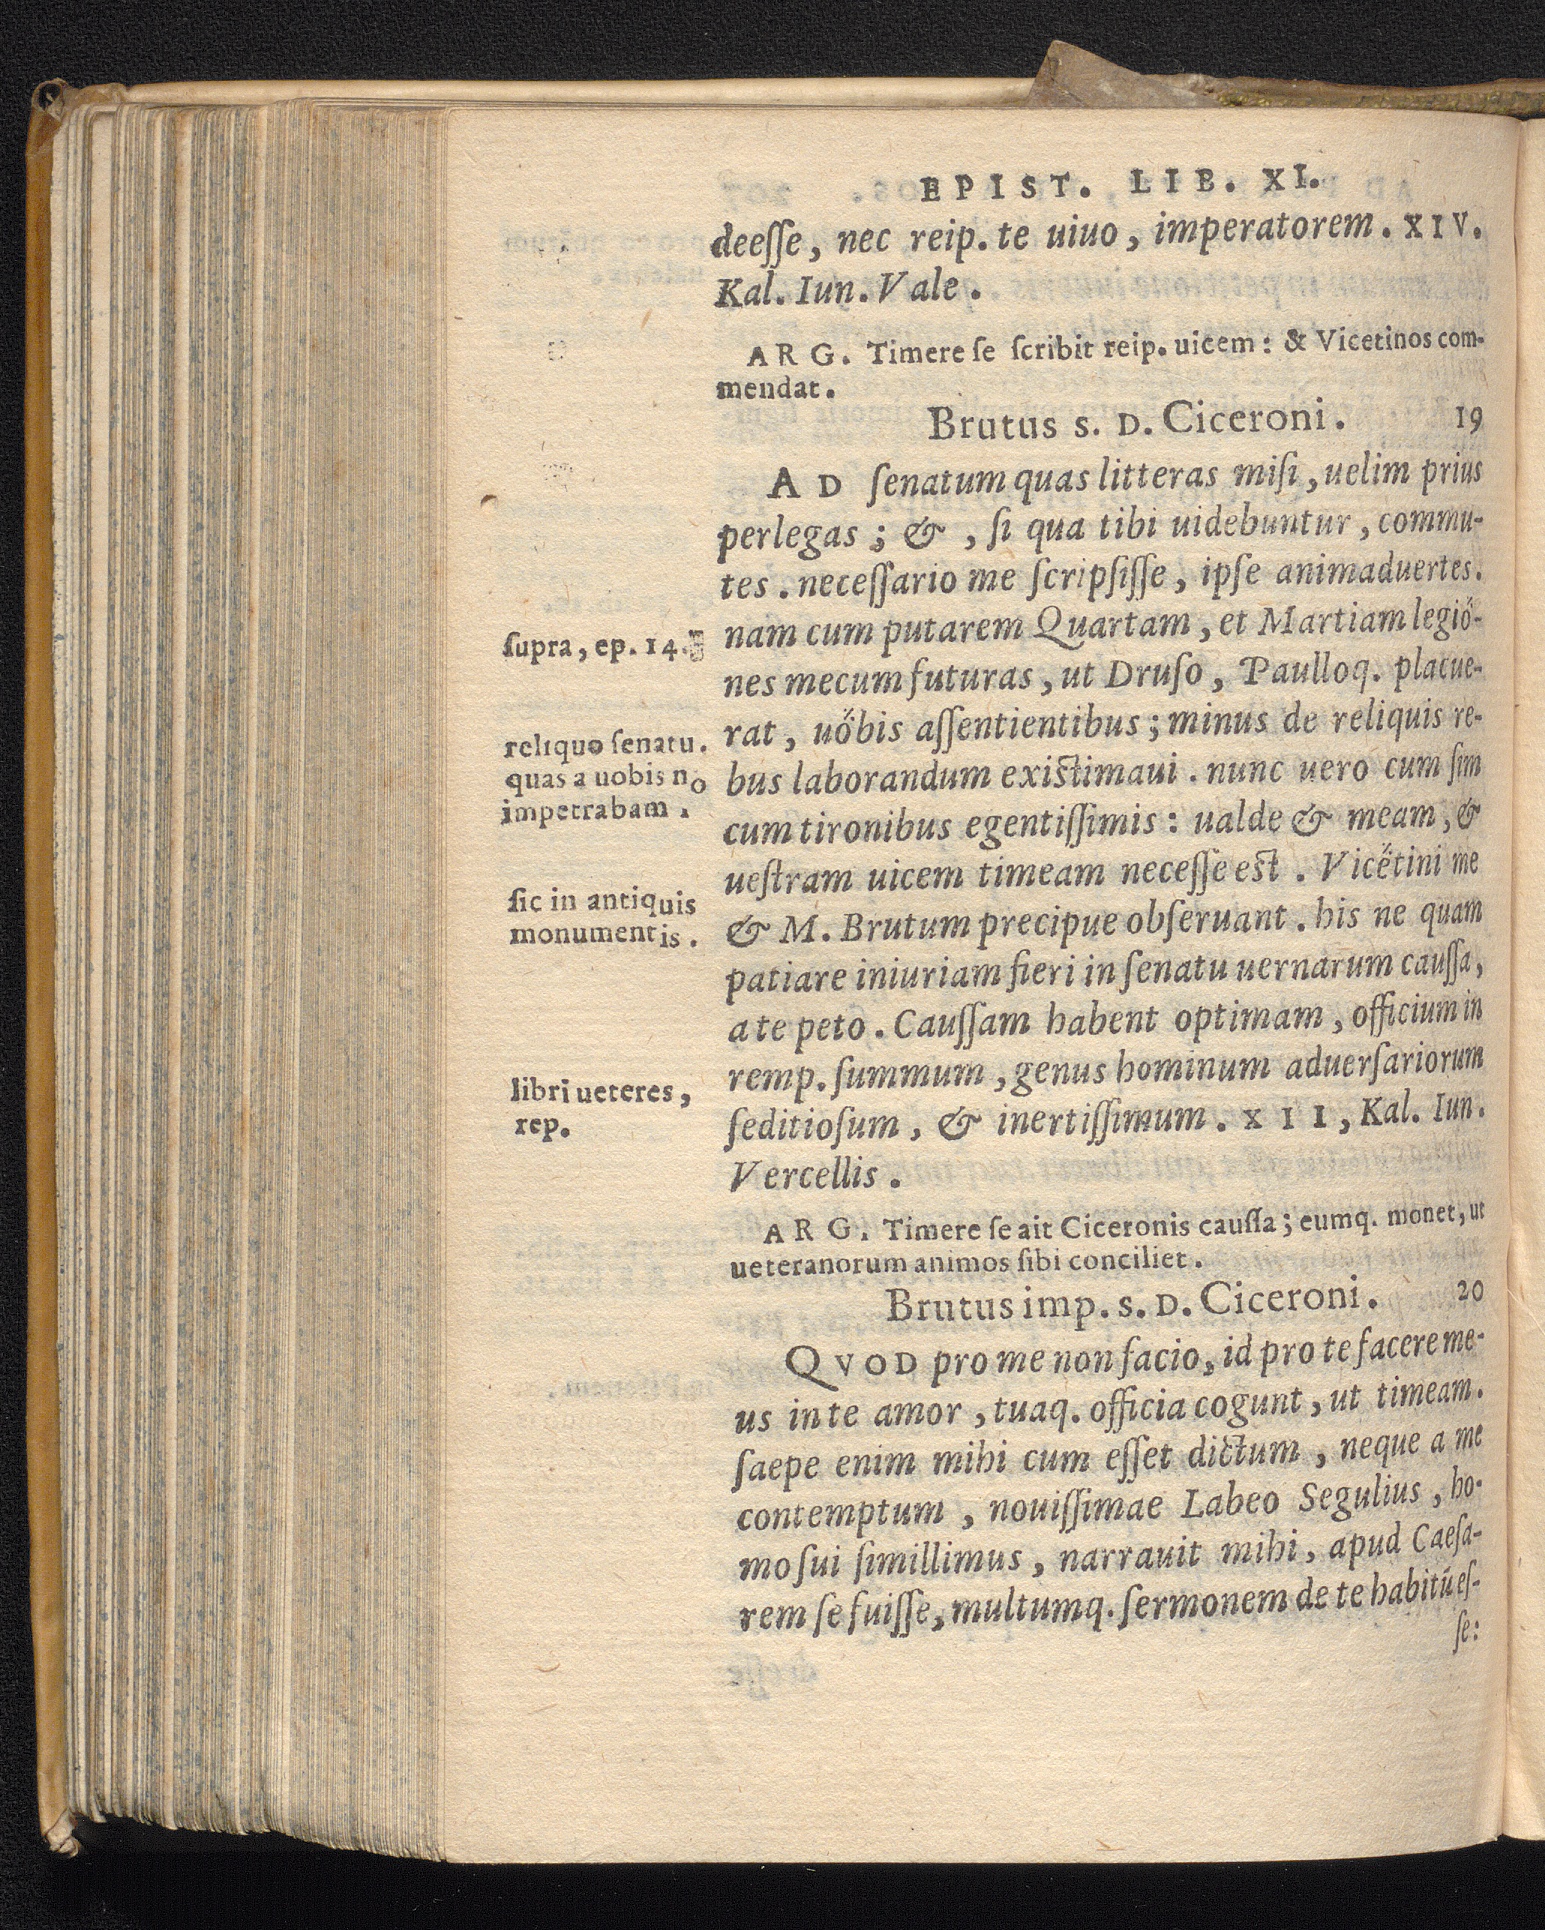 EPIST. LIB. XI.
deeſſe, nec reip. te uiuo, imperatorem. XIV.
Kal. Iun. Vale.
ARG. Timere ſe ſcribit reip. uicem: & Vicetinos com-
mendat.
Brutus s. D. Ciceroni. 19
AD ſenatum quas litteras miſi, uelim prius
perlegas; &, ſi qua tibi uidebuntur, commu-
tes. neceſſario me ſcripſiſſe, ipſe animaduertes.
nam cum putarem Quartam, et Martiam legio-
nes mecum futuras, ut Druſo, Paulloq. placue-
rat, uobis aſſentientibus; minus de reliquis re-
bus laborandum existimaui. nunc uero cum ſim
cum tironibus egentiſſimis: ualde & meam, &
ueſtram uicem timeam neceſſe est. Vicetini me
& M. Brutum precipue obſeruant. his ne quam
patiare iniuriam fieri in ſenatu uernarum cauſſa,
a te peto. Cauſſam habent optimam, officium in
remp. ſummum, genus hominum aduerſariorum
ſeditioſum, & inertiſſimum. XII, Kal. Iun.
Vercellis.
ARG. Timere ſe ait Ciceronis cauſſa; eumq. monet, ut
ueteranorum animos ſibi conciliet.
Brutus imp. s. D. Ciceroni. 20
QVOD pro me non facio, id pro te facere me-
us in te amor, tuaq. officia cogunt, ut timeam.
ſaepe enim mihi cum eſſet dictum, neque a me
contemptum, nouiſſimae Labeo Segulius, ho-
mo ſui ſimillimus, narrauit mihi, apud Caeſa-
rem ſe fuiſſe, multumq. ſermonem de te habitū eſ-
ſe:
ſupra, ep. 14.
reliquo ſenatu.
quas a uobis no
impetrabam.
ſic in antiquis
monumentis.
libri ueteres,
rep.